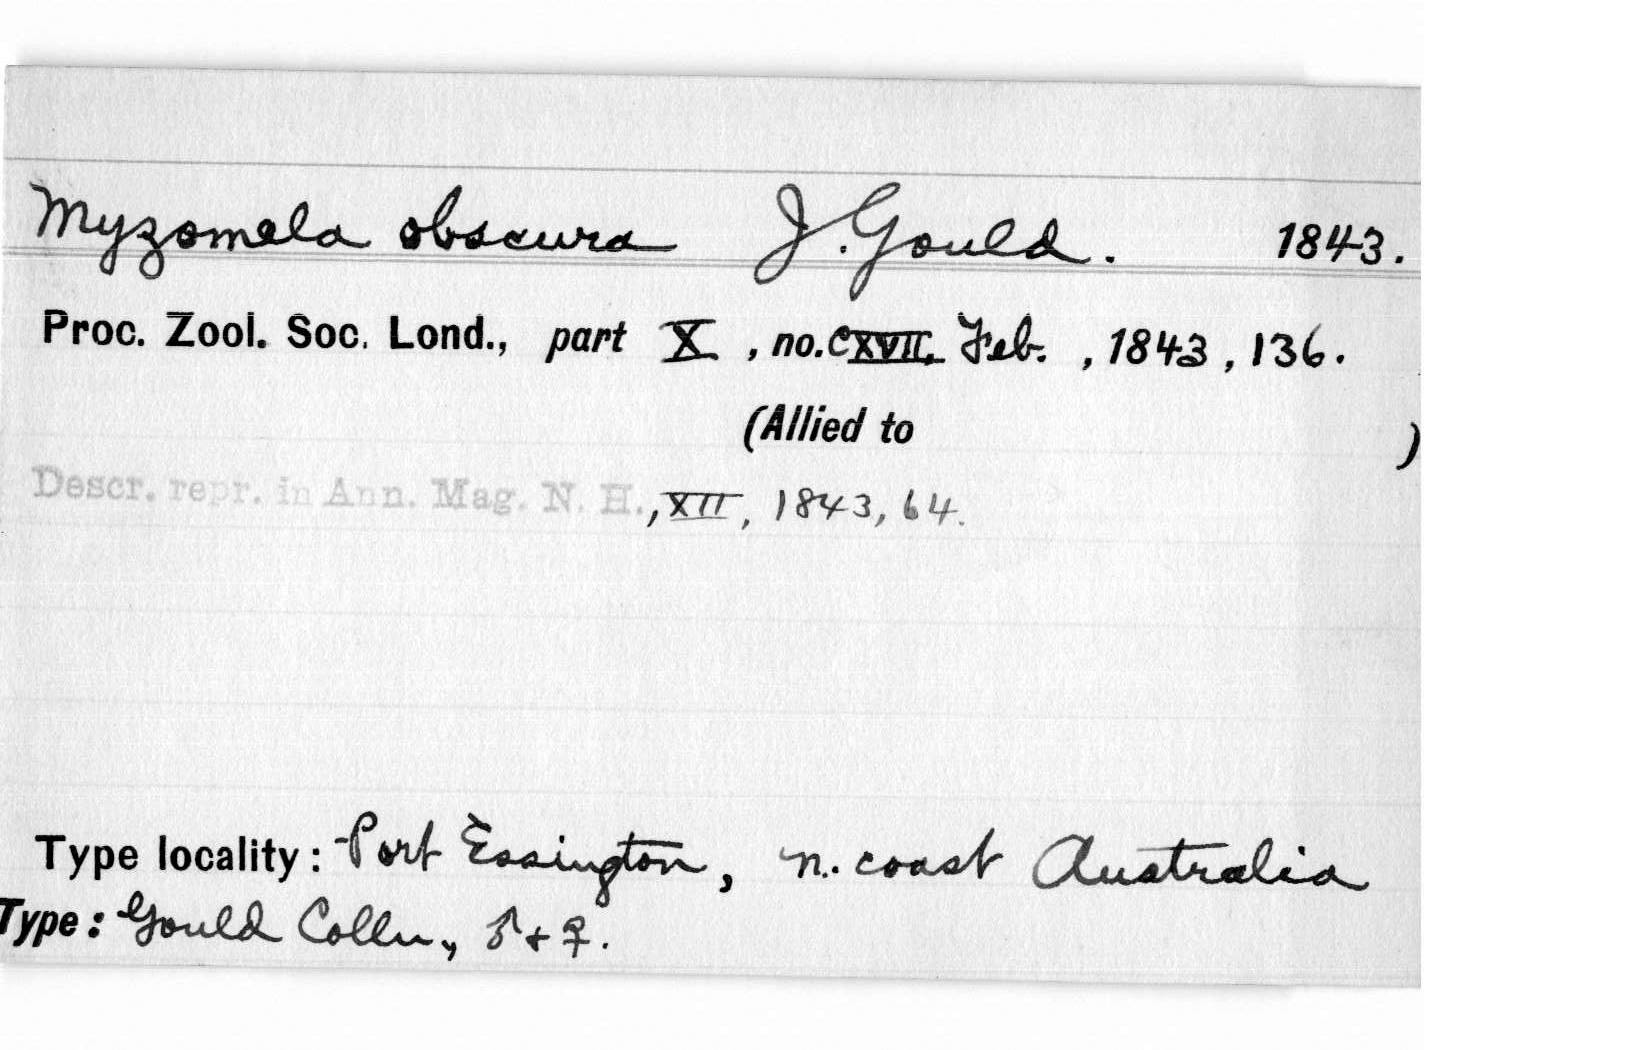 Myzomela obscura J. Gould. 1843.
Proc. Zool. Soc. Lond., part X, no. CXVII, Feb., 1843, 136.
(Allied to )
Descr. repr. in Ann. Mag. N. H., XII, 1843, 64.
Type locality: Port Essington, n. coast Australia
Type: Gould Colln., ♂ + ♀.